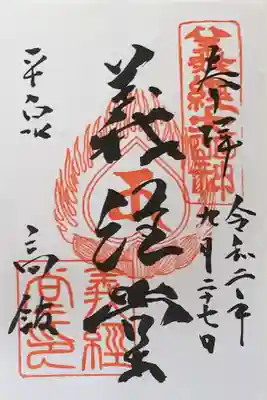 奉拝
令和二年
九月二十七日
義経堂
平泉
高館
義經
堂印